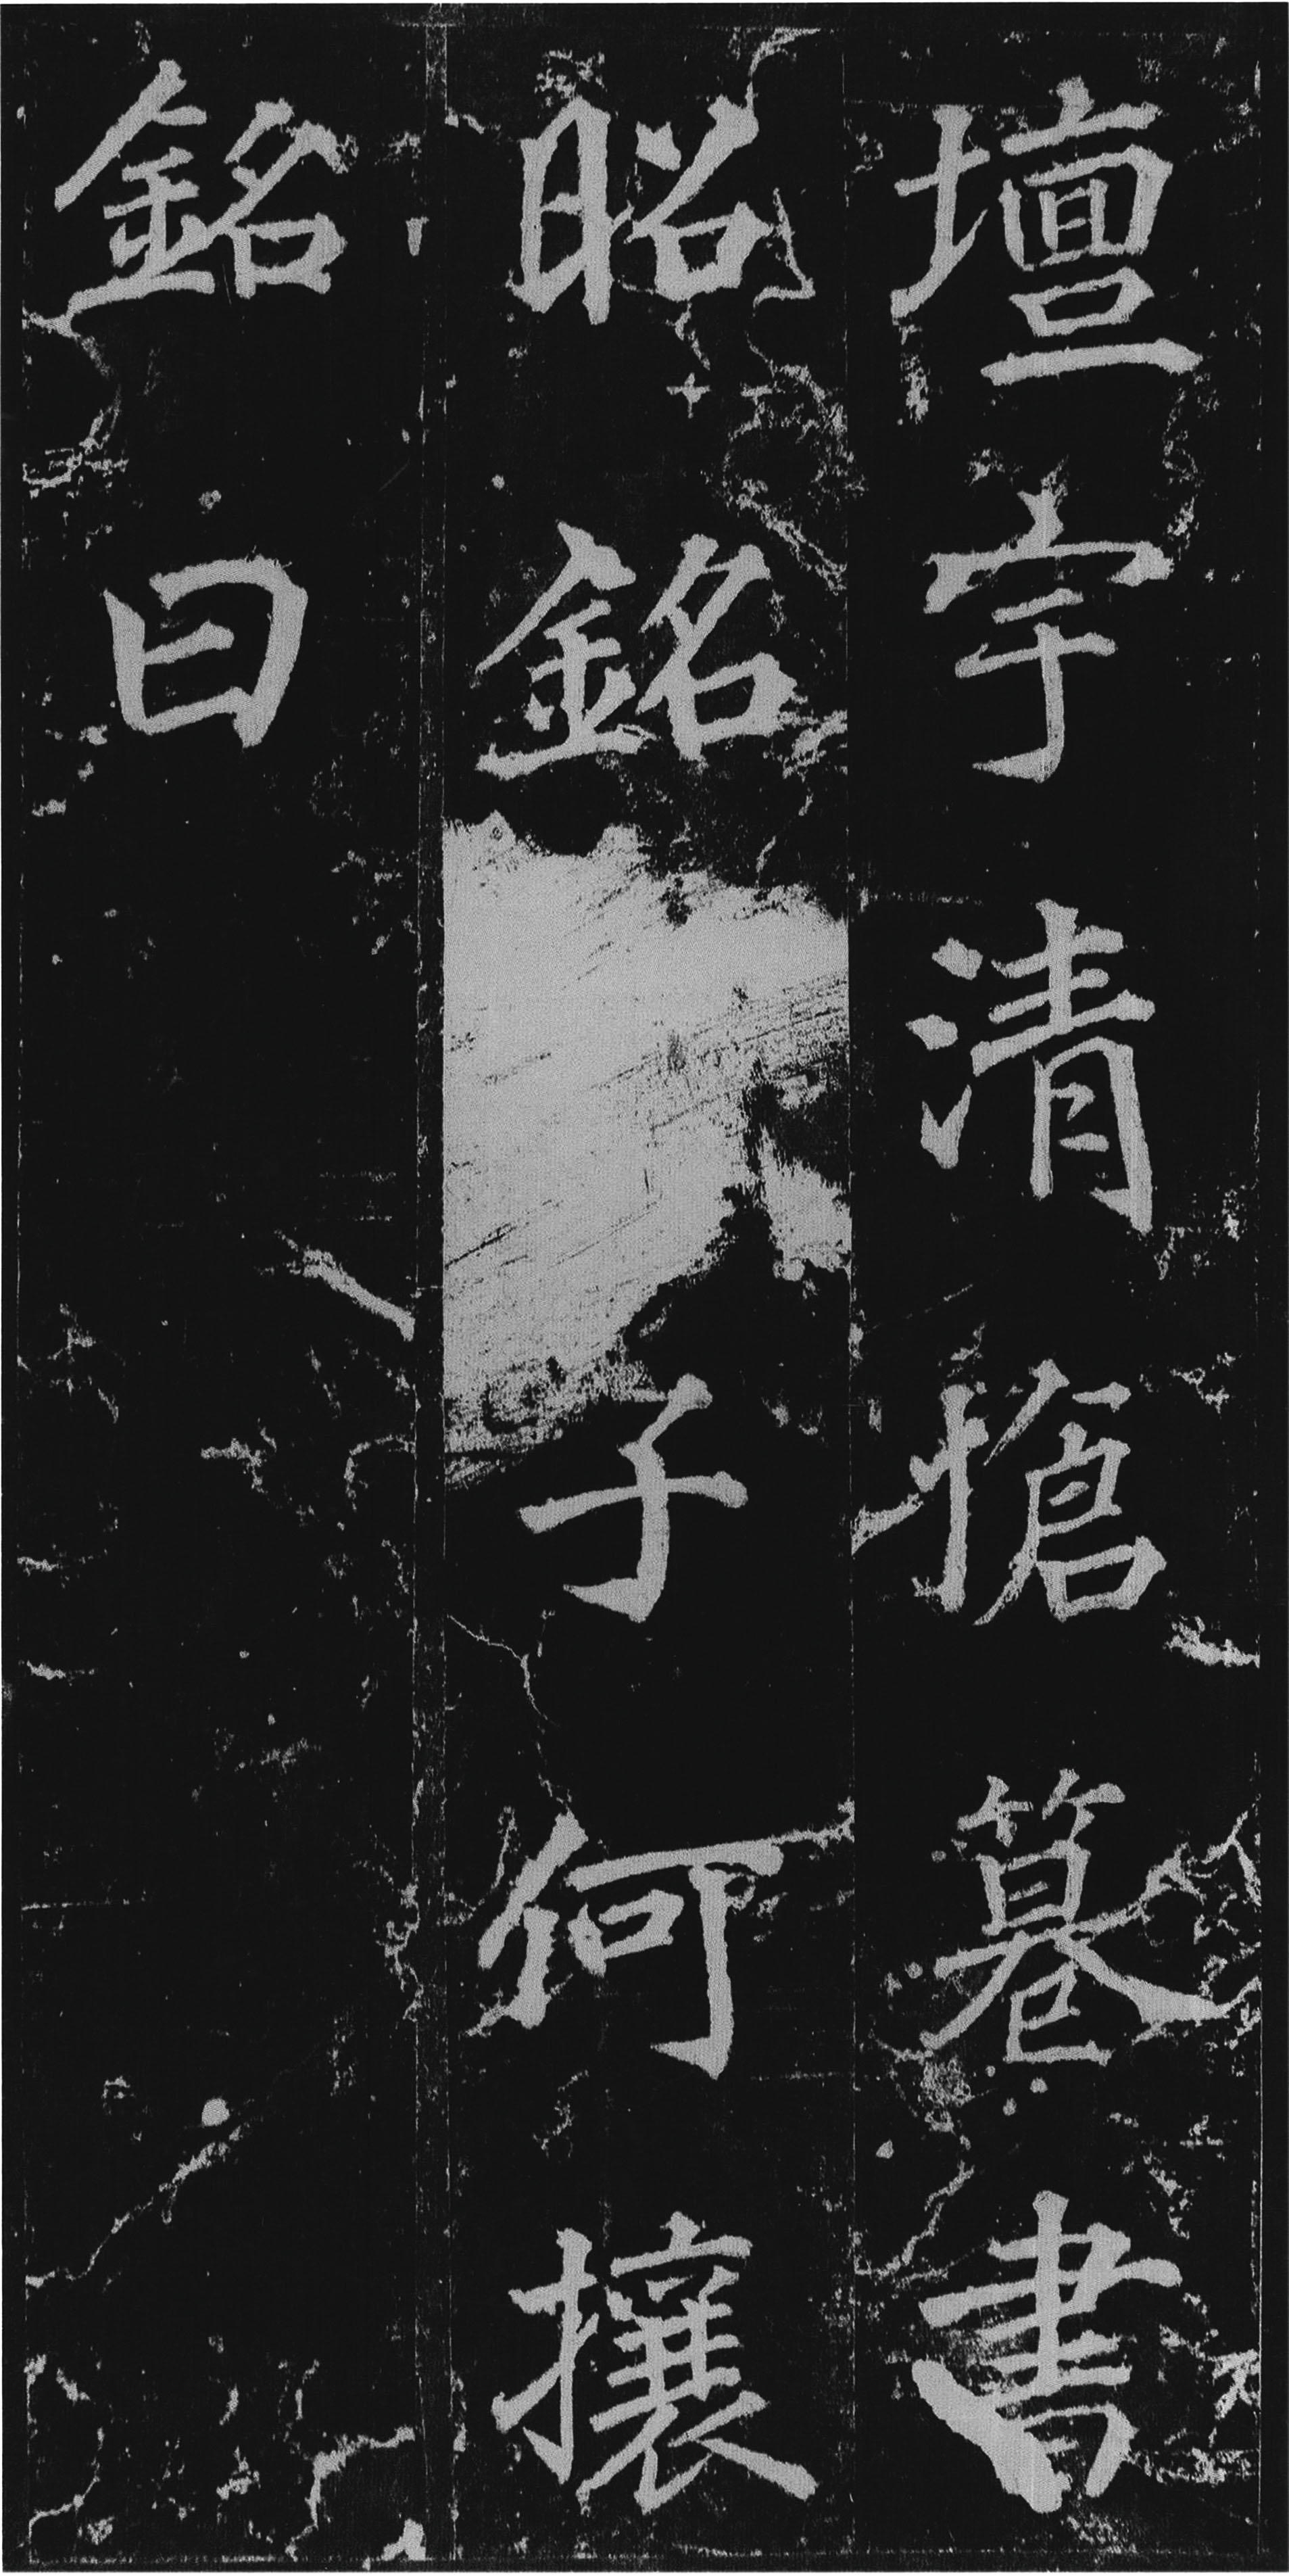 壇宇清愴篹書
昭銘子何攘
銘曰